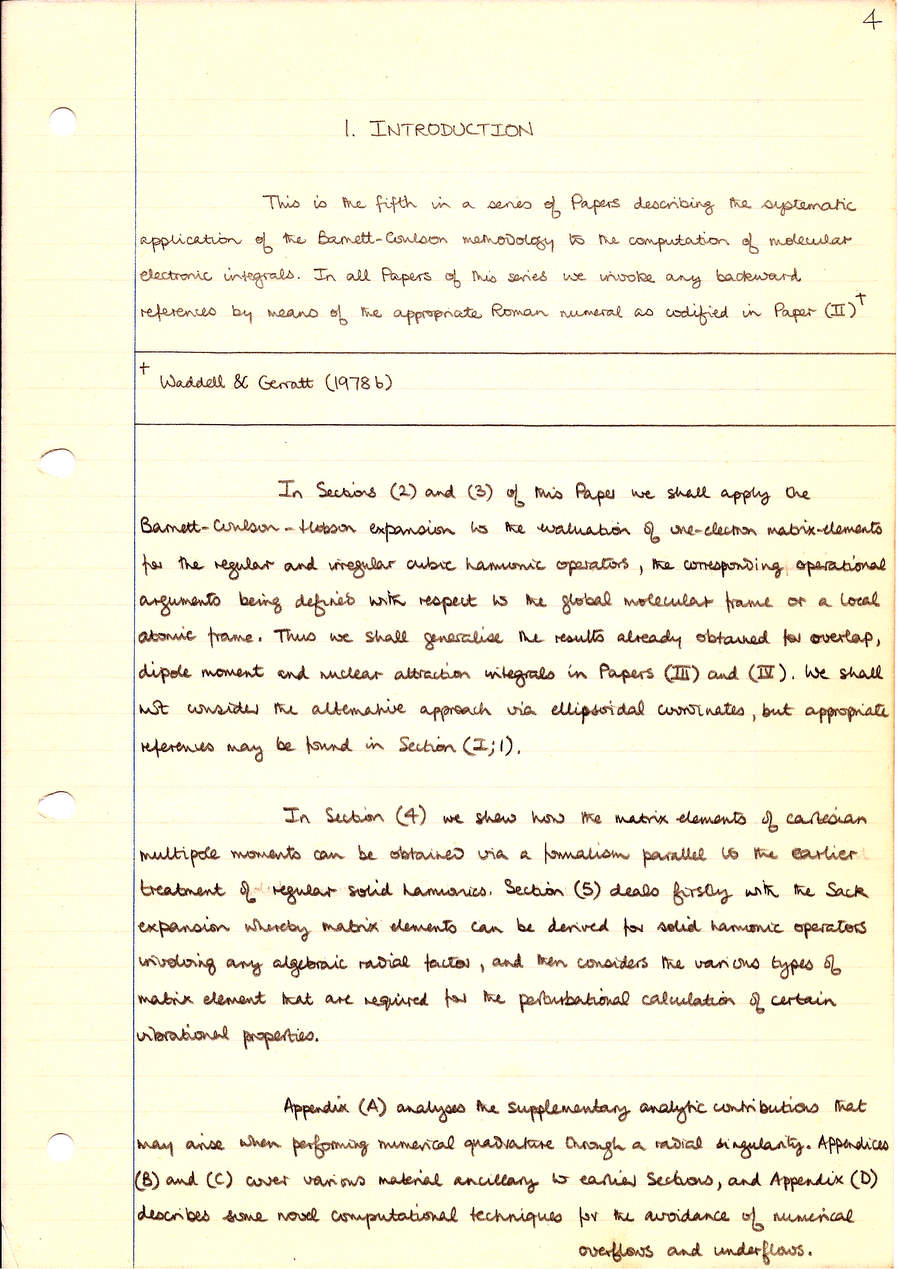 4
1. INTRODUCTION
This is the fifth in a series of Papers describing the systematic
application of the Barnett-Coulson methodology to the computation of molecular
electronic integrals. In all Papers of this series we invoke any backward
references by means of the appropriate Roman numeral as codified in Paper (II)†
† Waddell & Gerratt (1978b)
In Sections (2) and (3) of this Paper we shall apply the
Barnett-Coulson-Hobson expansion to the evaluation of one-electron matrix-elements
for the regular and irregular cubic harmonic operators, the corresponding operational
arguments being defined with respect to the global molecular frame or a local
atomic frame. Thus we shall generalise the results already obtained for overlap,
dipole moment and nuclear attraction integrals in Papers (III) and (IV). We shall
not consider the alternative approach via ellipsoidal coordinates, but appropriate
references may be found in Section (I;1).
In Section (4) we shew how the matrix elements of cartesian
multipole moments can be obtained via a formalism parallel to the earlier
treatment of regular solid harmonics. Section (5) deals firstly with the Sack
expansion whereby matrix elements can be derived for solid harmonic operators
involving any algebraic radial factor, and then considers the various types of
matrix element that are required for the perturbational calculation of certain
vibrational properties.
Appendix (A) analyses the supplementary analytic contributions that
may arise when performing numerical quadrature through a radial singularity. Appendices
(B) and (C) cover various material ancillary to earlier Sections, and Appendix (D)
describes some novel computational techniques for the avoidance of numerical
overflows and underflows.